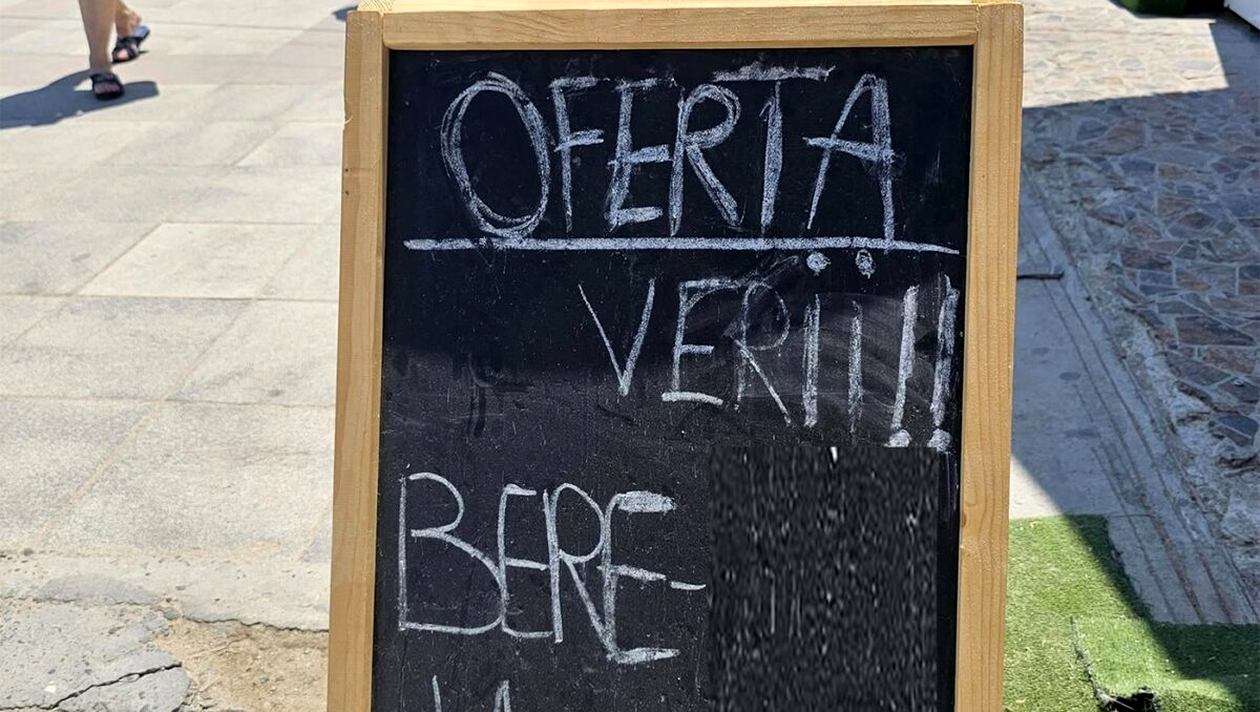 OFERTA
VERII!!
BERE-
LA